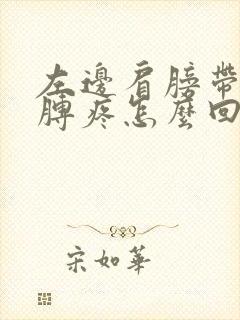 左邊肩膀帶
膊疼怎麼回
宋如華